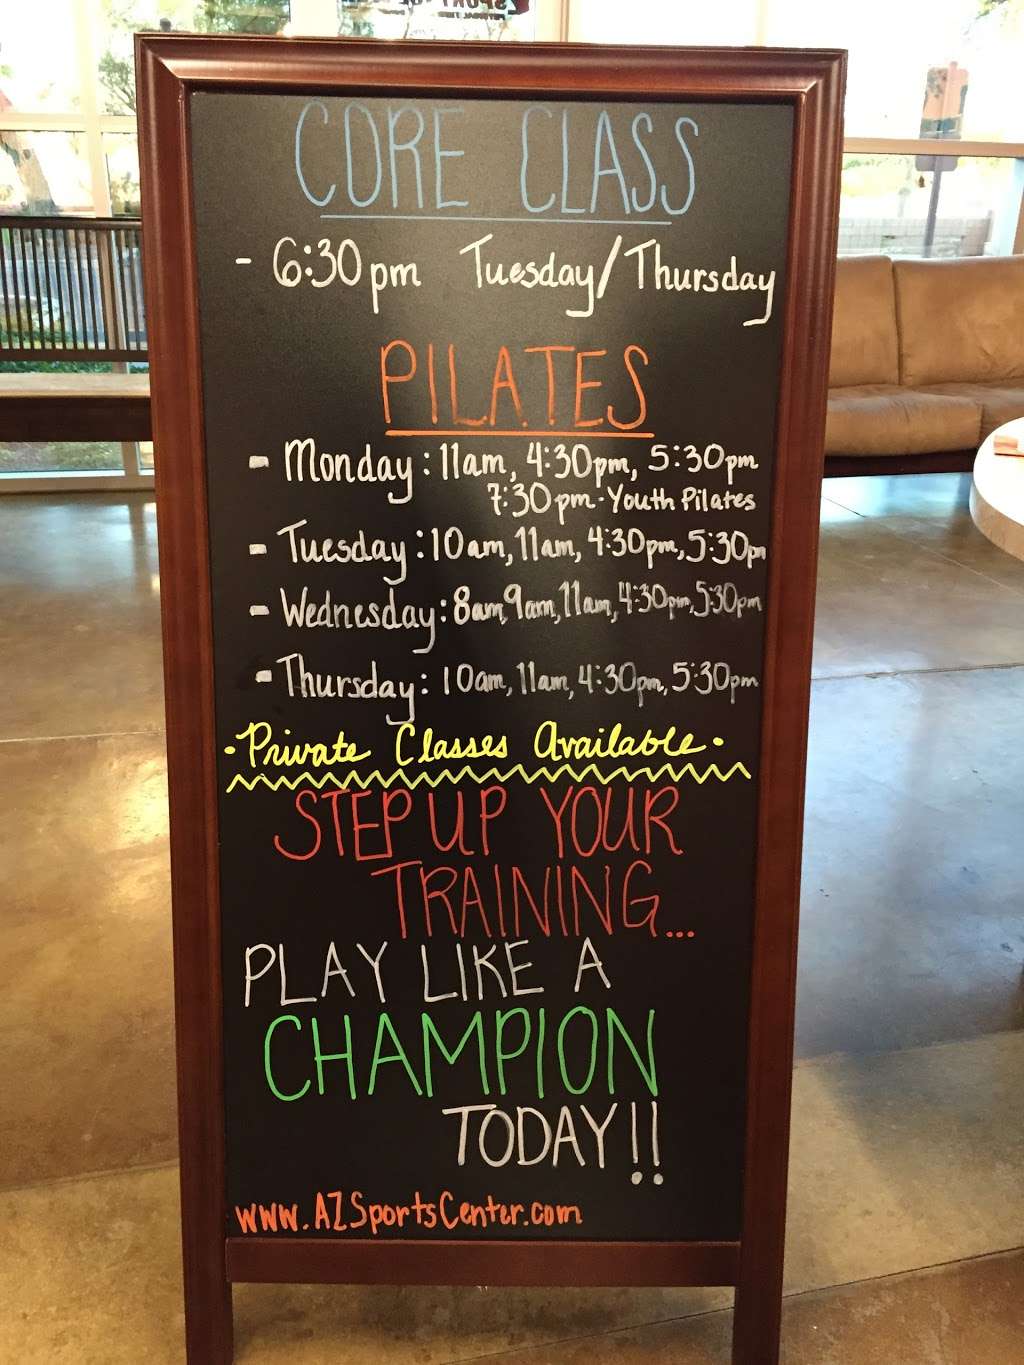 CORE CLASS
- 6:30pm Tuesday/Thursday
PILATES
- Monday: 11am, 4:30pm, 5:30pm
7:30pm - Youth Pilates
- Tuesday: 10am, 11am, 4:30pm, 5:30pm
- Wednesday: 8am, 9am, 11am, 4:30pm, 5:30pm
- Thursday: 10am, 11am, 4:30pm, 5:30pm
· Private Classes Available ·
STEP UP YOUR
TRAINING...
PLAY LIKE A
CHAMPION
TODAY!!
www.AZSportsCenter.com